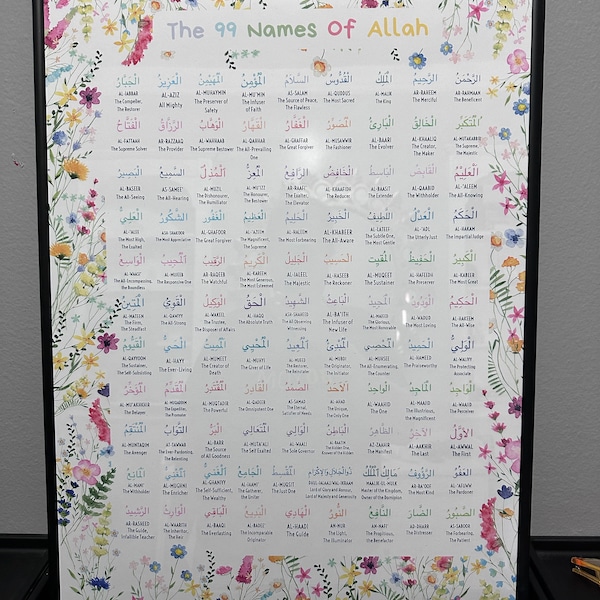 The 99 Names Of Allah
الرَّحْمَنُ
AR-RAHMAAN
The Beneficent
الرَّحِيمُ
AR-RAHEEM
The Merciful
الْمَلِكُ
AL-MALIK
The King
الْقُدُّوسُ
AL-QUDDUS
The Most Sacred
السَّلَامُ
AS-SALAM
The Source of Peace,
The Flawless
الْمُؤْمِنُ
AL-MU'MIN
The Infuser
of Faith
الْمُهَيْمِنُ
AL-MUHAYMIN
The Preserver of
Safety
الْعَزِيزُ
AL-AZIZ
All Mighty
الْجَبَّارُ
AL-JABBAR
The Compeller,
The Restorer
الْمُتَكَبِّرُ
AL-MUTAKABBIR
The Supreme,
The Majestic
الْخَالِقُ
AL-KHAALIQ
The Creator,
The Maker
الْبَارِئُ
AL-BAARI
The Evolver
الْمُصَوِّرُ
AL-MUSAWWIR
The Fashioner
الْغَفَّارُ
AL-GHAFFAR
The Great Forgiver
الْقَهَّارُ
AL-QAHHAR
The All-Prevailing
One
الْوَهَّابُ
AL-WAHHAAB
The Supreme Bestower
الرَّزَّاقُ
AR-RAZZAAQ
The Provider
الْفَتَّاحُ
AL-FATTAAH
The Supreme Solver
الْعَلِيمُ
AL-'ALEEM
The All-Knowing
الْقَابِضُ
AL-QAABID
The Withholder
الْبَاسِطُ
AL-BAASIT
The Extender
الْخَافِضُ
AL-KHAAFIDH
The Reducer
الرَّافِعُ
AR-RAAFI'
The Exalter,
The Elevator
الْمُعِزُّ
AL-MU'IZZ
The Honourer,
The Bestower
الْمُذِلُّ
AL-MUZIL
The Dishonourer,
The Humiliator
السَّمِيعُ
AS-SAMEE'
The All-Hearing
الْبَصِيرُ
AL-BASEER
The All-Seeing
الْحَكَمُ
AL-HAKAM
The Impartial Judge
الْعَدْلُ
AL-'ADL
The Utterly Just
اللَّطِيفُ
AL-LATEEF
The Subtle One,
The Most Gentle
الْخَبِيرُ
AL-KHABEER
The All-Aware
الْحَلِيمُ
AL-HALEEM
The Most Forbearing
الْعَظِيمُ
AL-'AZEEM
The Magnificent,
The Supreme
الْغَفُورُ
AL-GHAFOOR
The Great Forgiver
الشَّكُورُ
ASH-SHAKOOR
The Most Appreciative
الْعَلِيُّ
AL-'ALEE
The Most High,
The Exalted
الْكَبِيرُ
AL-KABEER
The Most Great
الْحَفِيظُ
AL-HAFEEDH
The Preserver
الْمُقِيتُ
AL-MUQEET
The Sustainer
الْحَسِيبُ
AL-HASEEB
The Reckoner
الْجَلِيلُ
AL-JALEEL
The Majestic
الْكَرِيمُ
AL-KAREEM
The Most Generous,
The Most Esteemed
الرَّقِيبُ
AR-RAQEEB
The Watchful
الْمُجِيبُ
AL-MUJEEB
The Responsive One
الْوَاسِعُ
AL-WAASI'
The All-Encompassing,
The Boundless
الْحَكِيمُ
AL-HAKEEM
The All-Wise
الْوَدُودُ
AL-WADUD
The Most Loving
الْمَجِيدُ
AL-MAJEED
The Glorious,
The Most Honorable
الْبَاعِثُ
AL-BA'ITH
The Infuser of
New Life
الشَّهِيدُ
ASH-SHAHEED
The All Observing,
Witnessing
الْحَقُّ
AL-HAQQ
The Absolute Truth
الْوَكِيلُ
AL-WAKEEL
The Trustee,
The Disposer of Affairs
الْقَوِيُّ
AL-QAWIYY
The All-Strong
الْمَتِينُ
AL-MATEEN
The Firm,
The Steadfast
الْوَلِيُّ
AL-WALIYY
The Protecting
Associate
الْحَمِيدُ
AL-HAMEED
The Praiseworthy
الْمُحْصِي
AL-MUHSEE
The All-Enumerating,
The Counter
الْمُبْدِئُ
AL-MUBDI
The Originator,
The Initiator
الْمُعِيدُ
AL-MUEED
The Restorer,
The Reinstater
الْمُحْيِي
AL-MUHYI
The Giver of Life
الْمُمِيتُ
AL-MUMEET
The Creator of
Death
الْحَيُّ
AL-HAYY
The Ever-Living
الْقَيُّومُ
AL-QAYYOOM
The Sustainer,
The Self-Subsisting
الْوَاجِدُ
AL-WAAJID
The Perceiver
الْمَاجِدُ
AL-MAAJID
The Illustrious,
The Magnificent
الْوَاحِدُ
AL-WAAHID
The One
الْأَحَدُ
AL-AHAD
The Unique,
The Only One
الصَّمَدُ
AS-SAMAD
The Eternal,
Satisfier of Needs
الْقَادِرُ
AL-QADEER
The Omnipotent One
الْمُقْتَدِرُ
AL-MUQTADIR
The Powerful
الْمُقَدِّمُ
AL-MUQADDIM
The Expediter,
The Promoter
الْمُؤَخِّرُ
AL-MU'AKHKHIR
The Delayer
الْأَوَّلُ
AL-AWWAL
The First
الْآخِرُ
AL-AAKHIR
The Last
الظَّاهِرُ
AZ-ZAAHIR
The Manifest
الْبَاطِنُ
AL-BAATIN
The Hidden One,
Knower of the Hidden
الْوَالِي
AL-WAALI
The Sole Governor
الْمُتَعَالِي
AL-MUTA'ALI
The Self Exalted
الْبَرُّ
AL-BARR
The Source
of All Goodness
التَّوَّابُ
AT-TAWWAB
The Ever-Pardoning,
The Relenting
الْمُنْتَقِمُ
AL-MUNTAQIM
The Avenger
الْعَفُوُّ
AL-'AFUWW
The Pardoner
الرَّؤُوفُ
AR-RA'OOF
The Most Kind
مَالِكُ الْمُلْكِ
MAALIK-UL-MULK
Master of the Kingdom,
Owner of the Dominion
ذُو الْجَلَالِ وَالْإِكْرَامِ
DHUL-JALAALI WAL-IKRAAM
Lord of Glory and Honour,
Lord of Majesty and Generosity
الْمُقْسِطُ
AL-MUQSIT
The Just One
الْجَامِعُ
AL-JAAMI'
The Gatherer,
the Uniter
الْغَنِيُّ
AL-GHANIYY
The Self-Sufficient,
The Wealthy
الْمُغْنِي
AL-MUGHNI
The Enricher
الْمَانِعُ
AL-MANI'
The Withholder
الصَّبُورُ
AS-SABOOR
The Forbearing,
The Patient
الضَّارُّ
AD-DHARR
The Distresser
النَّافِعُ
AN-NAFI'
The Propitious,
the Benefactor
النُّورُ
AN-NUR
The Light,
The Illuminator
الْهَادِي
AL-HAADI
The Guide
الْبَدِيعُ
AL-BADEE'
The Incomparable
Originator
الْبَاقِي
AL-BAAQI
The Everlasting
الْوَارِثُ
AL-WAARITH
The Inheritor,
the Heir
الرَّشِيدُ
AR-RASHEED
The Guide,
Infallible Teacher